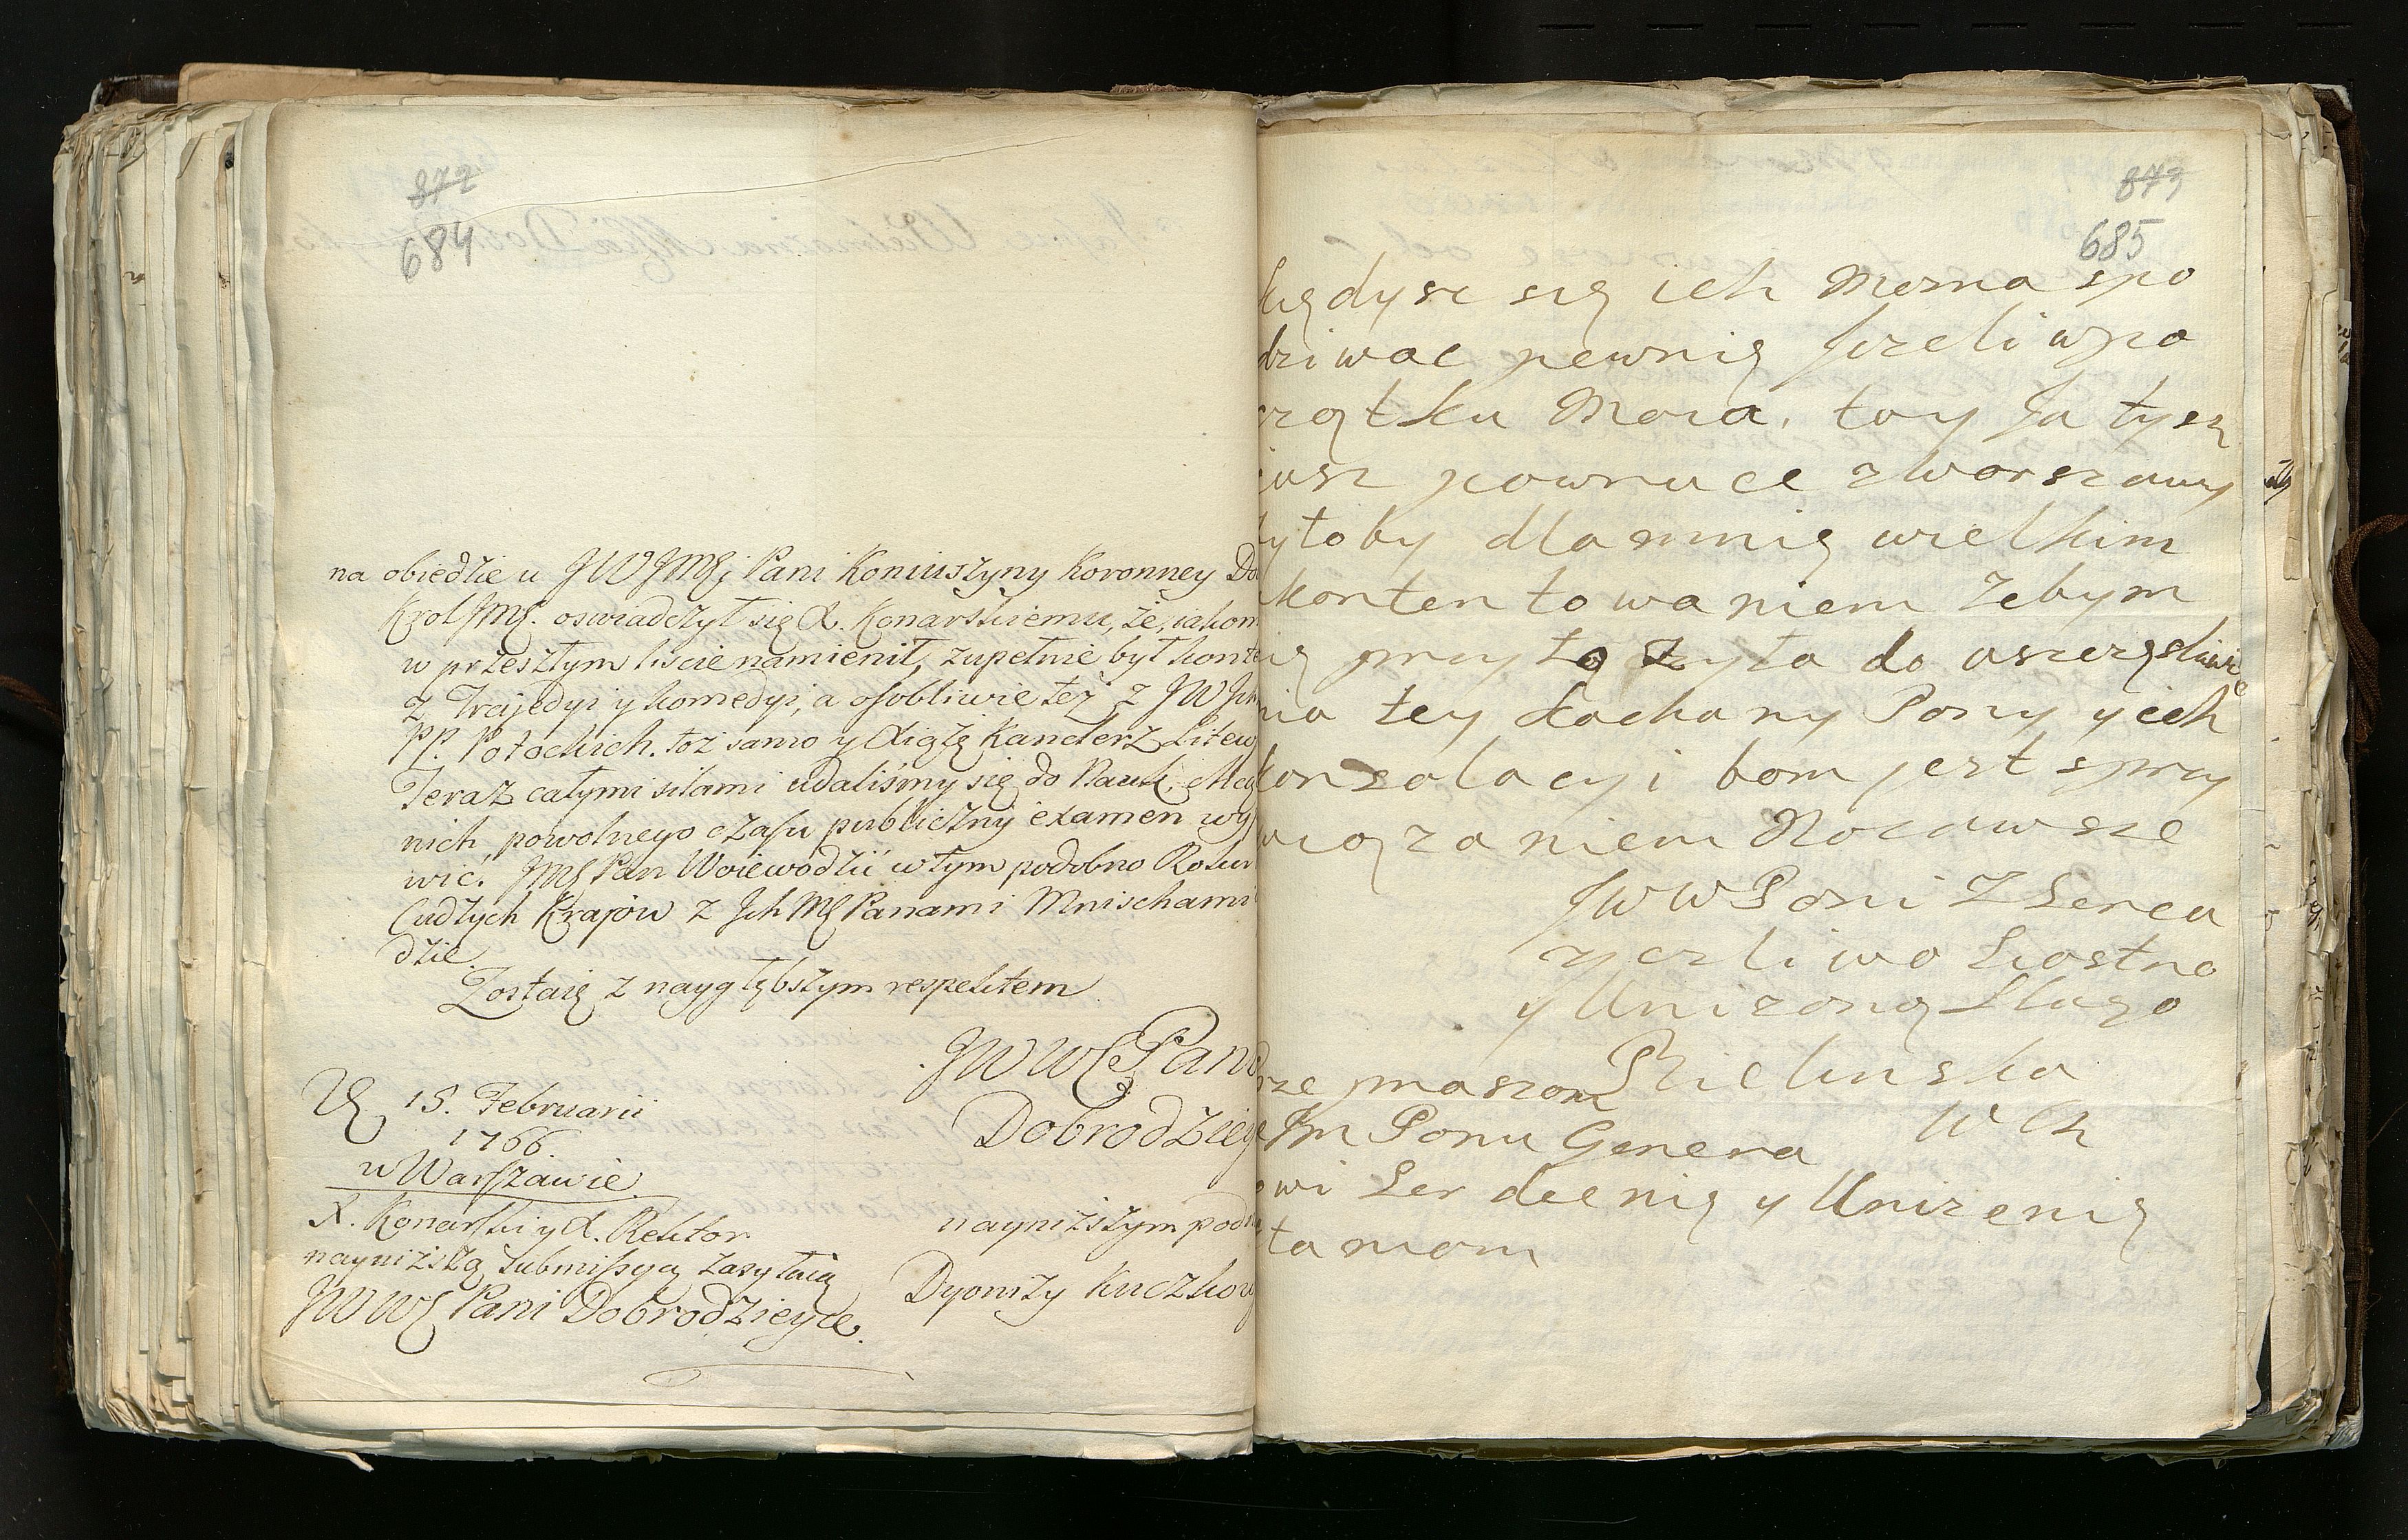 872
684
na obiedzie u JWJMći Pani Koniuszyny Koronney Do
Krol JMć. oswiadczył się X. Konarskiemu, że, iakom
w przeszłym liscie namienił, zupełnie był konte
z Trajedyi y komedyi, a osobliwie też z JW Jch
PP. Potockich. toż samo y Xiążę Kanclerz Litew
Teraz całymi siłami udaliśmy się do Nauk, chcąc
nich powolnego czasu publiczny examen wy
wić. JMć Pan Woiewodzic w tym podobno Roku
Cudzych Krajow z Jch Mć Panami Mnischami
dzie.
Zostaię z naygłębszym respektem
JWWć Pani
Dobrodzieyc
15. Februarii
1766.
w Warszawie.
X. Konarski y X. Rektor
nayniższą submissyą zasyłaią
JWWć Pani Dobrodzieyce.
nayniższym podn
Dyonizy Kuczkow
873
685
kiędysz się ich Mozna spo
dziwac pewnię Jezeli wpo
czątku Maia. toy Ja tysz
iusz powruce z Warszawy
bytoby dlamnię wielkim
kontentowaniem zebym
się przytozyła do uszczęsliwie
nia tey kochany Pany y ich
konsolacyi bom jest sprzy
wiązaniem Nazawsze
JWW Pani Z Serca
zyczliwo Siostro
y Unizoną Slugo
Bielinska
W Ch
prze praszom
Jm Panu Genera
owi Serdecnię y Unizenię
ktaniam